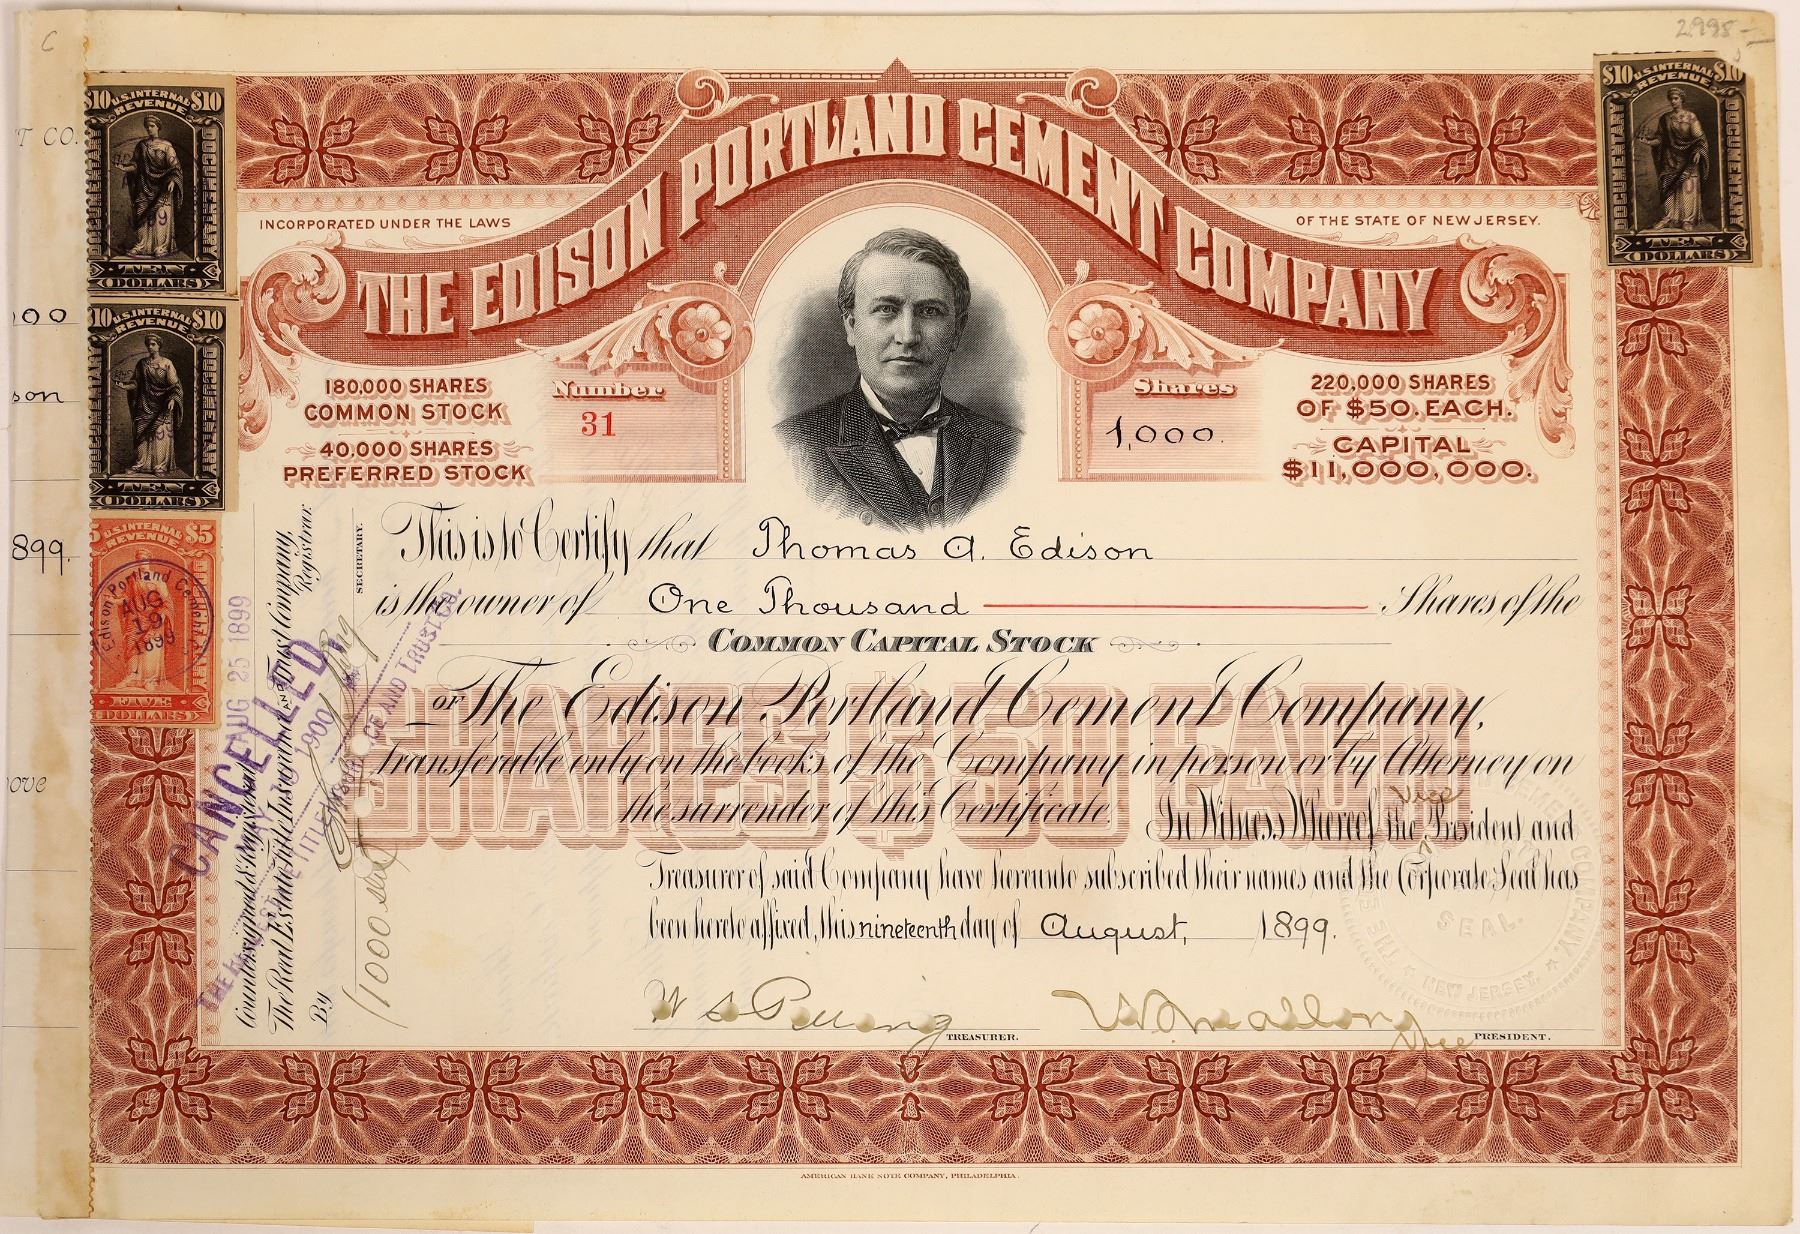 C
2998-
T CO.
$10 U.S. INTERNAL $10
REVENUE
DOCUMENTARY
DOCUMENTARY
TEN
DOLLARS
$10 U.S. INTERNAL $10
REVENUE
DOCUMENTARY
DOCUMENTARY
TEN
DOLLARS
THE EDISON PORTLAND CEMENT COMPANY
INCORPORATED UNDER THE LAWS
OF THE STATE OF NEW JERSEY.
00
son
899.
10 U.S. INTERNAL $10
REVENUE
DOCUMENTARY
DOCUMENTARY
TEN
DOLLARS
180,000 SHARES
COMMON STOCK
40,000 SHARES
PREFERRED STOCK
Number
31
Shares
1,000.
220,000 SHARES
OF $50. EACH.
CAPITAL
$11,000,000.
5 U.S. INTERNAL $5
REVENUE
FIVE
DOLLARS
Edison Portland Cement Co.
AUG
19
1899
This is to Certify that Thomas A. Edison
is the owner of One Thousand Shares of the
COMMON CAPITAL STOCK
OF The Edison Portland Cement Company,
SHARES $50 EACH
Transferable only on the books of the Company in person or by Attorney on
the surrender of this Certificate. In Witness Whereof the Vice President and
Treasurer of said Company have hereunto subscribed their names and the Corporate Seal has
been hereto affixed, this nineteenth day of August, 1899.
W S Pilling
TREASURER.
W. S. Mallory
Vice PRESIDENT.
SEAL.
NEW JERSEY
Countersigned & Registered
AUG 25 1899
The Real Estate Title Insurance AND Trust Company,
Registrar.
By
SECRETARY.
CANCELLED
1900
1000 sh
AMERICAN BANK NOTE COMPANY, PHILADELPHIA.